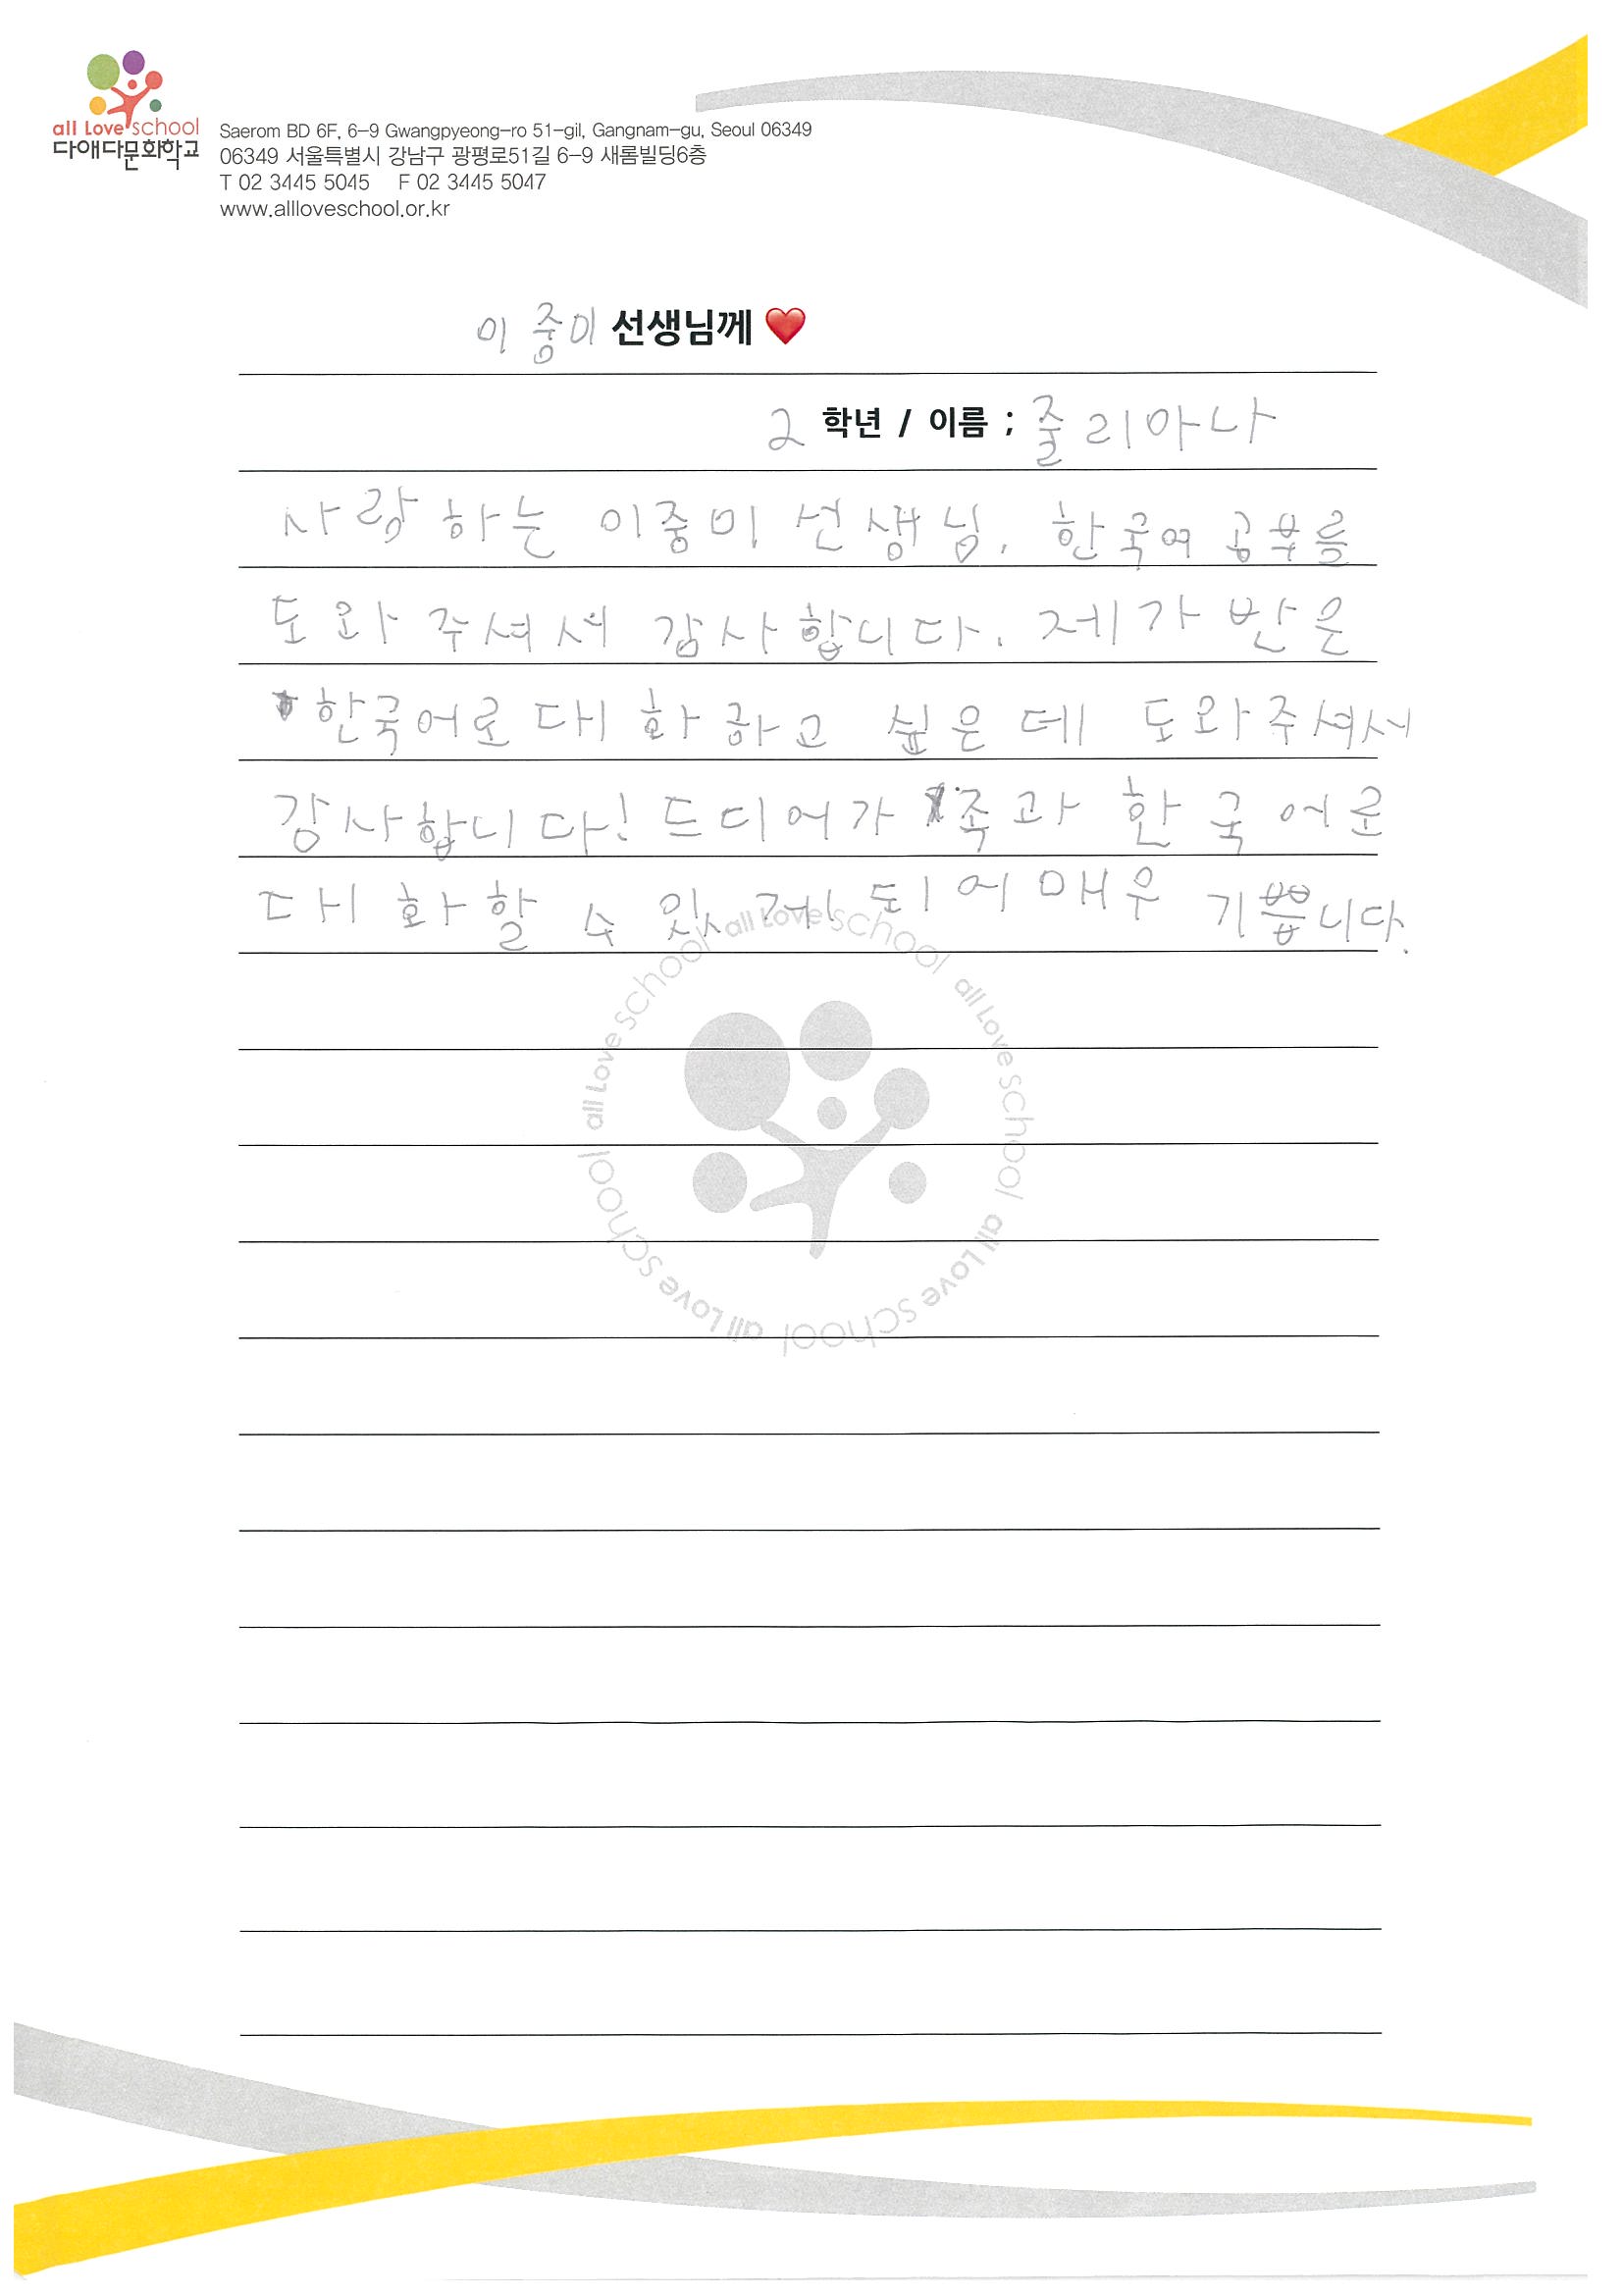 all Love school
다애다문화학교
Saerom BD 6F, 6-9 Gwangpyeong-ro 51-gil, Gangnam-gu, Seoul 06349
06349 서울특별시 강남구 광평로51길 6-9 새롬빌딩6층
T 02 3445 5045 F 02 3445 5047
www.allloveschool.or.kr
이중미 선생님께
2 학년 / 이름 ; 줄리아나
사랑하는 이중미 선생님. 한국어 공부를
도와 주셔서 감사합니다. 제가 반은
한국어로 대화하고 싶은데 도와주셔서
감사합니다! 드디어 가족과 한국어로
대화할 수 있게 되어 매우 기쁩니다.
all Love school all Love school all Love school all Love school all Love school